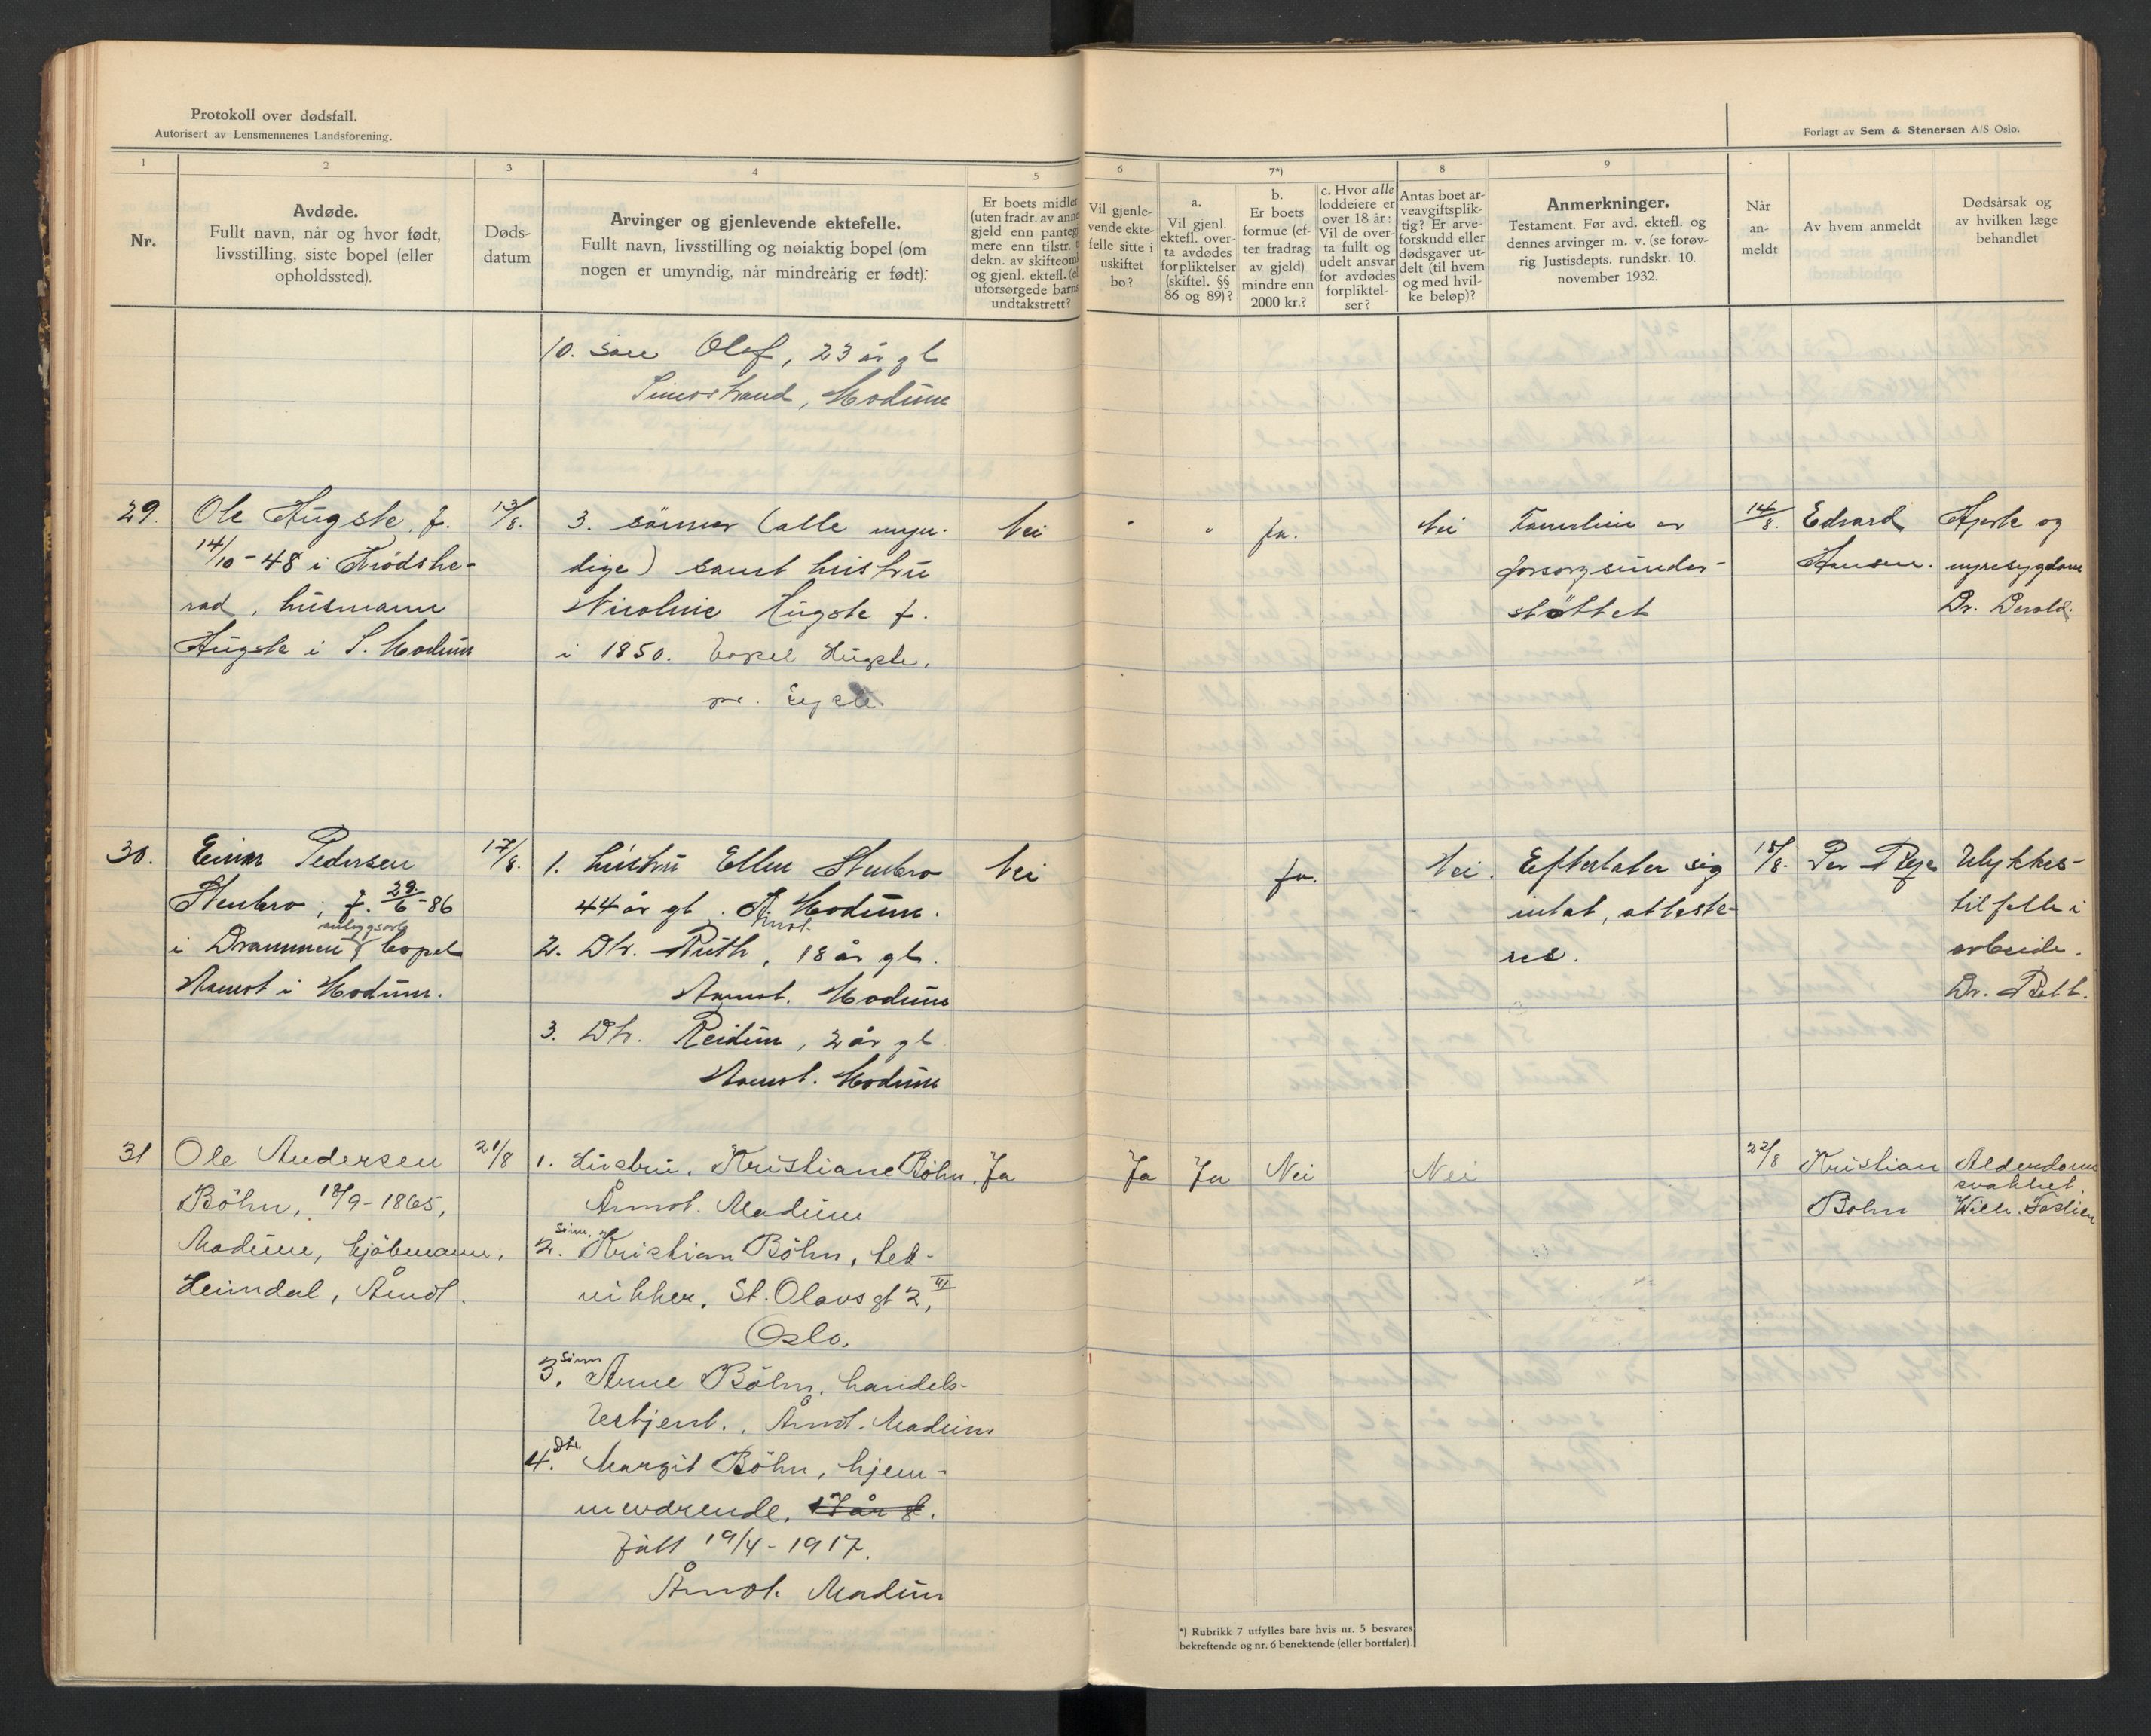 Protokoll over dødsfall.
Autorisert av Lensmennenes Landsforening.
Forlagt av Sem & Stenersen A/S Oslo.
1
2
3
4
5
6
7*)
8
9
Nr.
Avdøde.
Fullt navn, når og hvor født,
livsstilling, siste bopel (eller
opholdssted).
Døds-
datum
Arvinger og gjenlevende ektefelle.
Fullt navn, livsstilling og nøiaktig bopel (om
nogen er umyndig, når mindreårig er født):
Er boets midler
(uten fradr. av anne
gjeld enn pantegj
mere enn tilstr.
dekn. av skifteomk
og gjenl. ektefl. (el
uforsørgede barns
undtakstrett?
Vil gjenle-
vende ekte-
felle sitte i
uskiftet
bo?
a.
Vil gjenl.
ektefl. over-
ta avdødes
forpliktelser
(skiftel. §§
86 og 89)?
b.
Er boets
formue (ef-
ter fradrag
av gjeld)
mindre enn
2000 kr.?
c. Hvor alle
loddeiere er
over 18 år:
Vil de over-
ta fullt og
udelt ansvar
for avdødes
forpliktel-
ser?
Antas boet ar-
veavgiftsplik-
tig? Er arve-
forskudd eller
dødsgaver ut-
delt (til hvem
og med hvil-
ke beløp)?
Anmerkninger.
Testament. Før avd. ektefl. og
dennes arvinger m. v. (se forøv-
rig Justisdepts. rundskr. 10.
november 1932.
Når
an-
meldt
Av hvem anmeldt
Dødsårsak og
av hvilken læge
behandlet
10. sønn Olaf, 23 år gl
Simostrand, Modum
29. Ole Hugste, f. 13/8. 3. sønner (alle myn- Nei " " Ja. Nei Familien er 14/8. Edvard Hjerte og
14/10-48 i Krødshe- dige) samt hustru forsorgsunder- Hansen. nyresygdom
rad, husmann Nicoline Hugste f. støttet Dr.
Hugste i S. Modum i 1850. bopel Hugste,
pr.
30. Einar Pedersen 17/8. 1. hustru Ellen Stenbro Nei Ja. Nei. Efterlater sig 18/8. Per Ulykkes-
Stenbro, f. 29/6-86 44 år gl. Modum. intet, atteste- tilfelle i
i Drammen, bopel 2. Dtr. Ruth, 18 år gl. res. arbeide.
Aamot i Modum. Aamot. Modum Dr.
3. Dtr. Reidun, 2 år gl
Aamot. Modum
31 Ole Andersen 21/8 1. Hustru, Kristiane Böhn, Ja Ja Ja Nei Nei 22/8 Kristian Alderdoms
Böhn, 18/9-1865, Åmot. Modum svakhet
Böhn Wilh. Faslien
Modum, kjöbmann, sönn. 2. Kristian Böhn, tek-
Heimdal, Åmot. nikker, St. Olavs gt 2, III
Oslo.
sönn 3. Arne Böhn, handels-
betjent., Åmot. Modum
Dtr. 4. Margit Böhn, hjem-
meværende, 17 år gl.
född 19/4-1917.
Åmot. Modum
*) Rubrikk 7 utfylles bare hvis nr. 5 besvares
bekreftende og nr. 6 benektende (eller bortfaler).